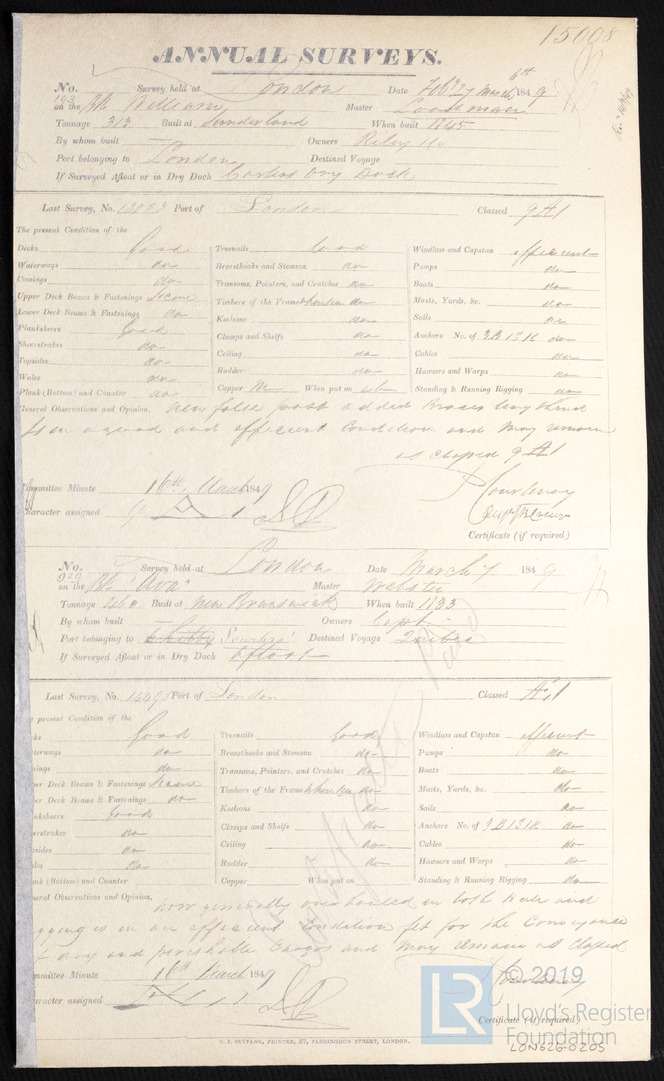 15008
ANNUAL SURVEYS.
No. 193 Survey held at London Date Feb 27 March 6th 1849
on the Bk William Master
Tonnage 313 Built at Sunderland When built 1845
By whom built Owners Riley & Co
Port belonging to London Destined Voyage
If Surveyed Afloat or in Dry Dock Dry Dock
Last Survey, No. Port of London Classed 9 A 1
The present Condition of the
Decks Good
Waterways do
Comings do
Upper Deck Beams & Fastenings Secure
Lower Deck Beams & Fastenings do
Planksheers Good
Sheerstrakes do
Topsides do
Wales do
Plank (Bottom) and Counter do
Treenails Good
Breasthooks and Stemson do
Transoms, Pointers, and Crutches do
Timbers of the Frame where seen do
Keelsons do
Clamps and Shelfs do
Ceiling do
Rudder do
Copper When put on
Windlass and Capstan efficient
Pumps do
Boats do
Masts, Yards, &c. do
Sails do
Anchors No. of 3B 1S 1K do
Cables do
Hawsers and Warps do
Standing & Running Rigging do
General Observations and Opinion, New false post added Braces
Is in a good and efficient Condition and May remain
as classed 9 A 1
Committee Minute 16th March 1849
Character assigned 9 A 1
Courtenay
Certificate (if required)
No. 929 Survey held at London Date March 7 1849
on the Bk "Ava" Master Webster
Tonnage 260 Built at New Brunswick When built 1833
By whom built Owners Capt
Port belonging to Whitby Destined Voyage Quebec
If Surveyed Afloat or in Dry Dock Afloat
Last Survey, No. Port of London Classed Æ 1
present Condition of the
Good
terways do
ings do
per Deck Beams & Fastenings Secure
er Deck Beams & Fastenings do
nksheers Good
erstrakes do
psides do
les do
ank (Bottom) and Counter
Treenails Good
Breasthooks and Stemson do
Transoms, Pointers, and Crutches do
Timbers of the Frame where seen do
Keelsons do
Clamps and Shelfs do
Ceiling do
Rudder do
Copper When put on
Windlass and Capstan efficient
Pumps do
Boats do
Masts, Yards, &c. do
Sails do
Anchors No. of 3B 1S 1K do
Cables do
Hawsers and Warps do
Standing & Running Rigging do
eral Observations and Opinion, now generally overhauled in both Hull and
gging is in an efficient Condition fit for the Conveyance
dry and perishable Cargos and May remain as Classed
mmittee Minute 16th March 1849
aracter assigned Æ 1
Courtenay
Certificate (if required)
G. F. SEYFANG, PRINTER, 57, FARRINGDON STREET, LONDON.
LR
© 2019
Lloyd's Register
Foundation
LON626-0205